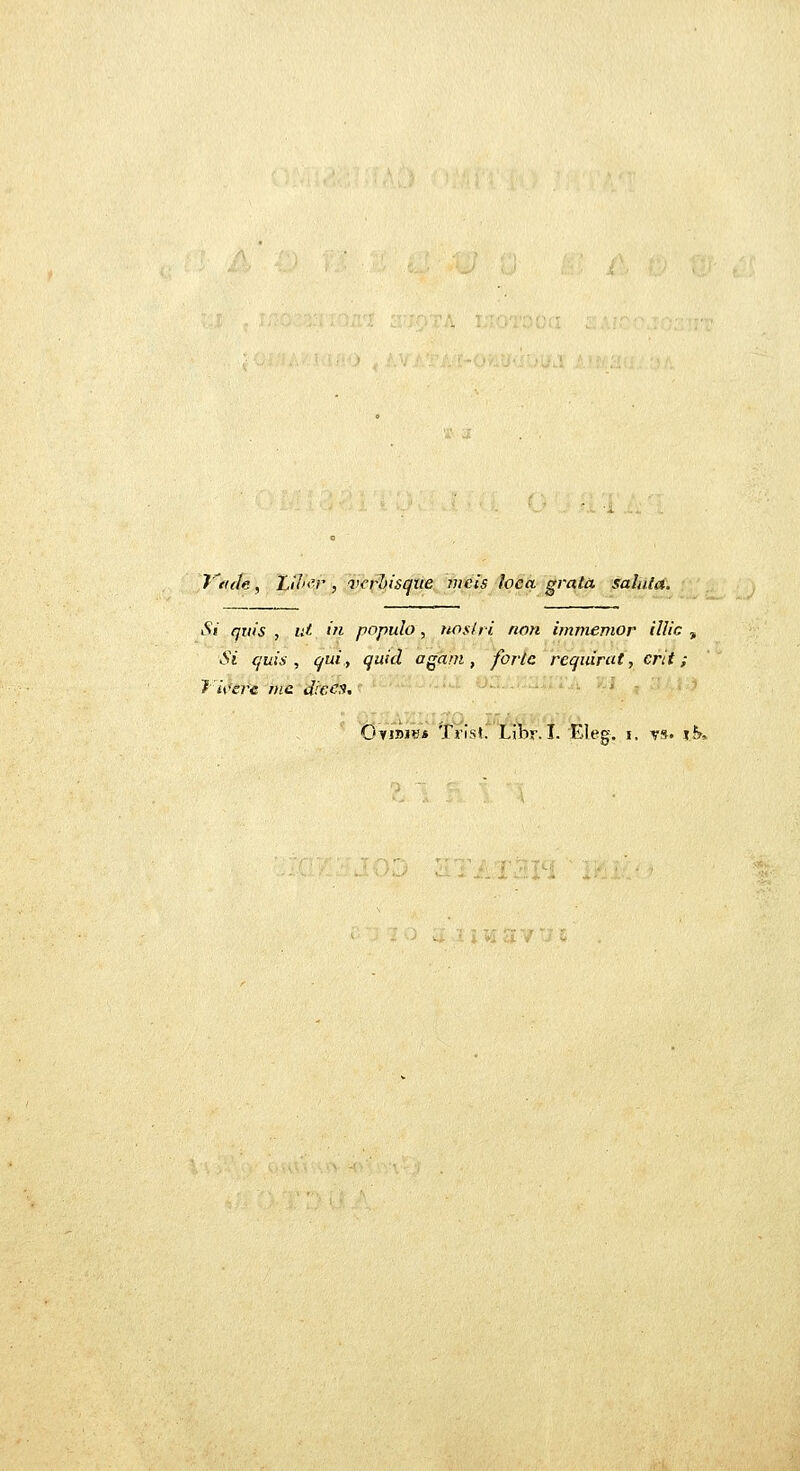 Vade, Liber, verbisque meis loca grata saluta.
Si quis , ut in populo , nostri non immemor illic ,
Si quis , qui, quid agam, forte requirat, erit ;
Vivere me dices.
OVIDIUS Trist. Libr. I. Eleg. 1. vs.